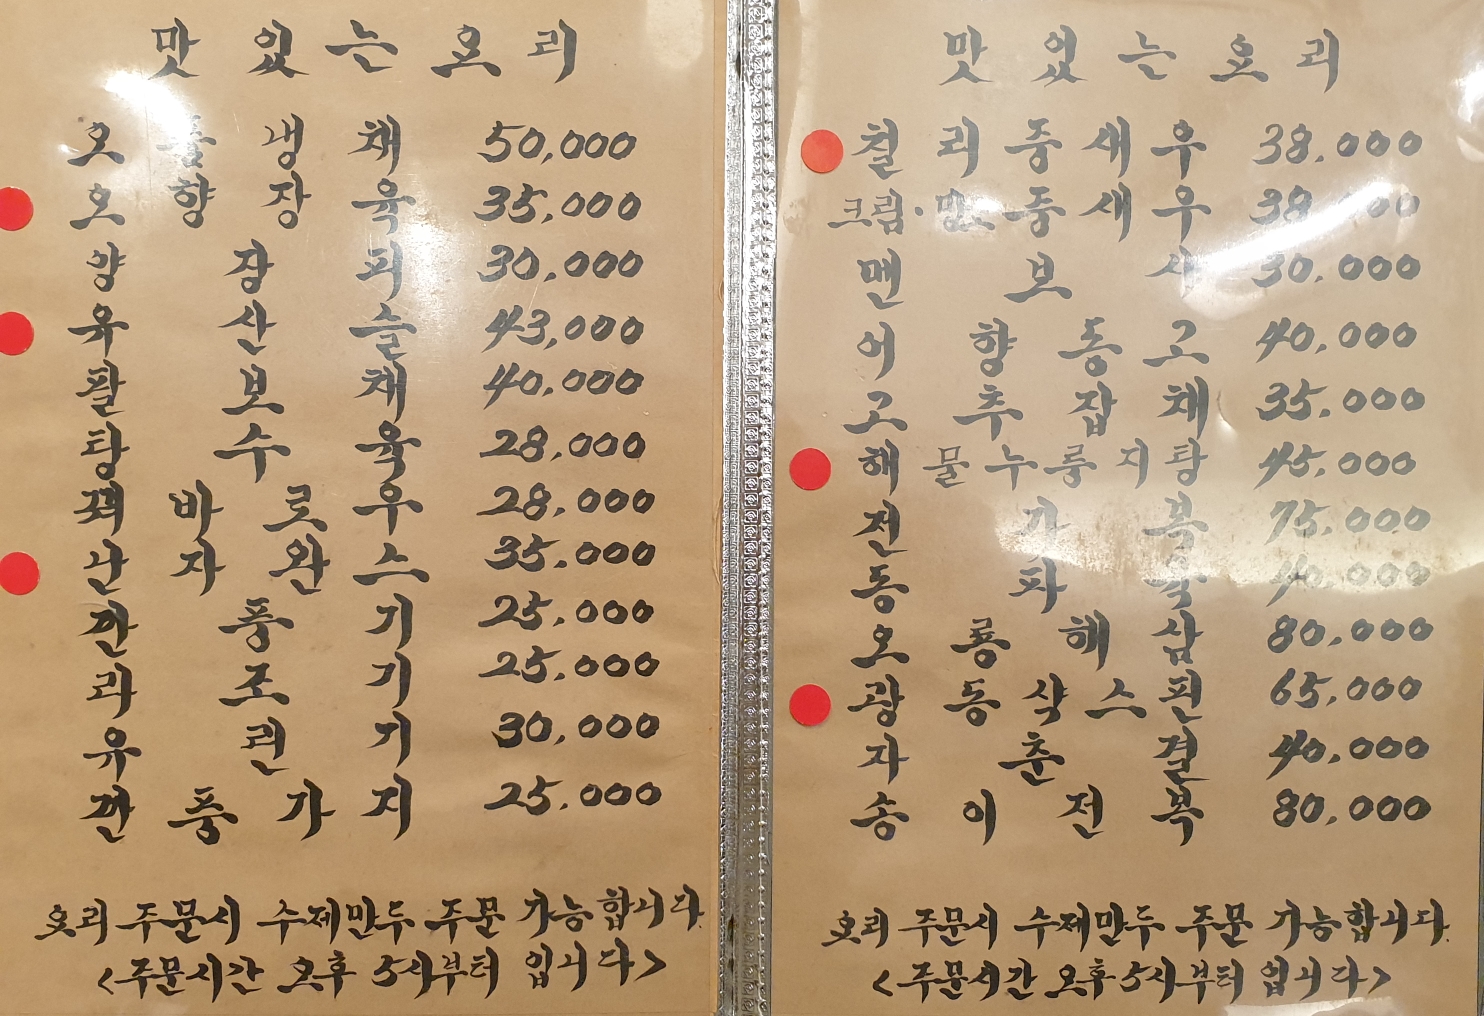 맛있는요리
오품냉채 50,000
오향장육 35,000
양장피 30,000
유산슬 43,000
팔보채 40,000
탕수육 28,000
꿔바로우 28,000
난자완스 35,000
깐풍기 25,000
라조기 25,000
유린기 30,000
깐풍가지 25,000
요리 주문시 수제만두 주문 가능합니다.
<주문시간 오후 5시부터 입니다>
맛있는요리
칠리중새우 38,000
크림·망고중새우 38,000
멘보샤 30,000
어향동고 40,000
고추잡채 35,000
해물누룽지탕 45,000
전가복 75,000
동파육 40,000
오룡해삼 80,000
광동샥스핀 65,000
자춘결 40,000
송이전복 80,000
요리 주문시 수제만두 주문 가능합니다.
<주문시간 오후 5시부터 입니다>